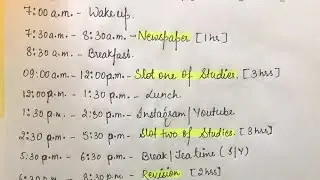 7:00 a.m. - Wake up.
7:30 a.m. - 8:30 a.m. - Newspaper [1hr]
8:30 a.m. - Breakfast.
09:00 a.m. - 12:00 p.m. - Slot one of Studies. [3 hrs]
12:00 p.m. - 1:30 p.m. - Lunch.
1:30 p.m. - 2:30 p.m. - Instagram/Youtube
2:30 p.m. - 5:30 p.m. - Slot two of Studies. [3 hrs]
5:30 p.m. - 6:30 p.m. - Break/Tea time (S/Y)
6:30 p.m. - 8:30 p.m. - Revision [2hrs]